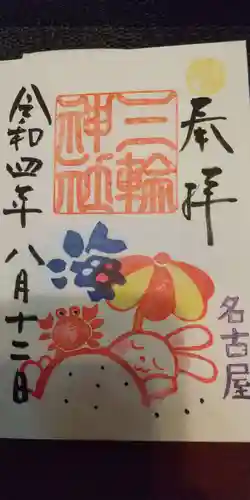 奉拝
三輪
神社
海
令和四年八月十二日
名古屋